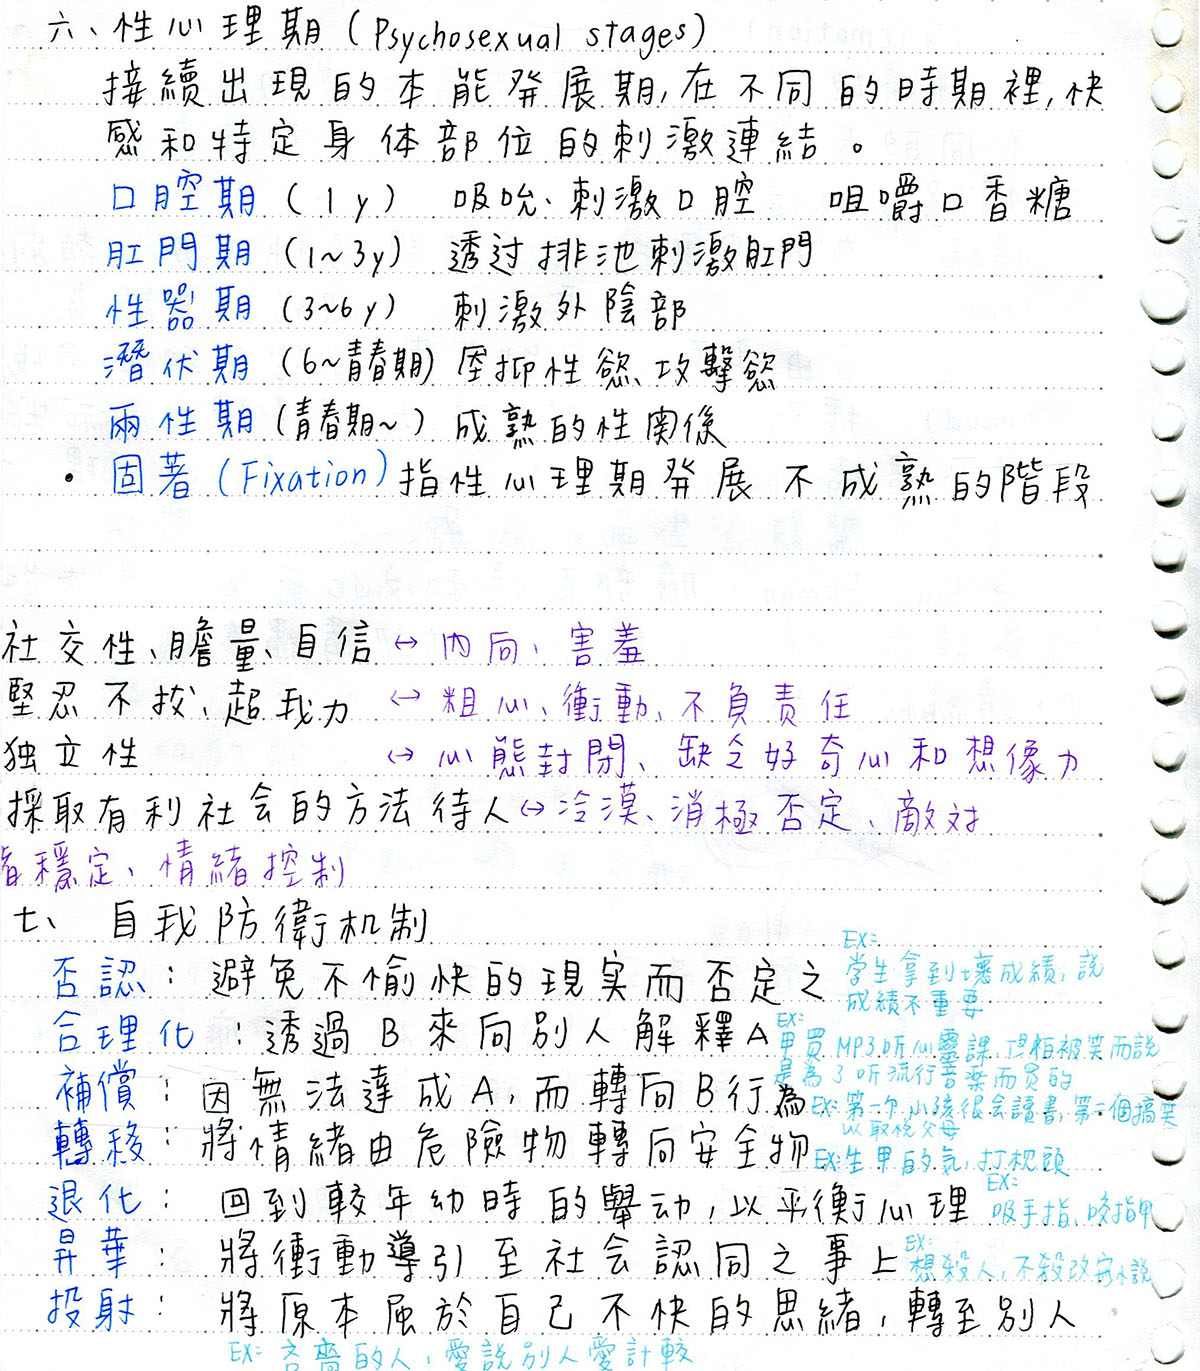 六、性心理期(Psychosexual stages)
接續出現的本能発展期,在不同的時期裡,快
感和特定身体部位的刺激連結。
口腔期(1y) 吸吮、刺激口腔 咀嚼口香糖
肛門期(1~3y) 透过排泄刺激肛門
性器期(3~6y) 刺激外陰部
潛伏期(6~青春期)壓抑性慾、攻擊慾
兩性期(青春期~)成熟的性関係
• 固著(Fixation)指性心理期発展不成熟的階段
社交性、膽量、自信 ↔ 內向、害羞
堅忍不拔、超我力 ↔ 粗心、衝動、不負責任
独立性 ↔ 心態封閉、缺乏好奇心和想像力
採取有利社会的方法待人 ↔ 冷漠、消極否定、敵対
穩定、情緒控制
七、自我防衛机制
否認:避免不愉快的現実而否定之
EX:学生拿到壞成績,說
成績不重要
合理化:透過B來向別人解釋A
EX:甲買MP3听心靈課,但怕被笑而說
是為了听流行音楽而買的
補償:因無法達成A,而轉向B行為
EX:第一个小孩很会讀書,第二個搞笑
以取悅父母
轉移:將情緒由危險物轉向安全物
EX:生甲的気,打枕頭
退化:回到較年幼時的舉动,以平衡心理
EX:吸手指、咬指甲
昇華:將衝動導引至社会認同之事上
EX:想殺人,不殺改寫小說
投射:將原本屬於自己不快的思緒,轉至別人
EX:吝嗇的人,愛說別人愛計較